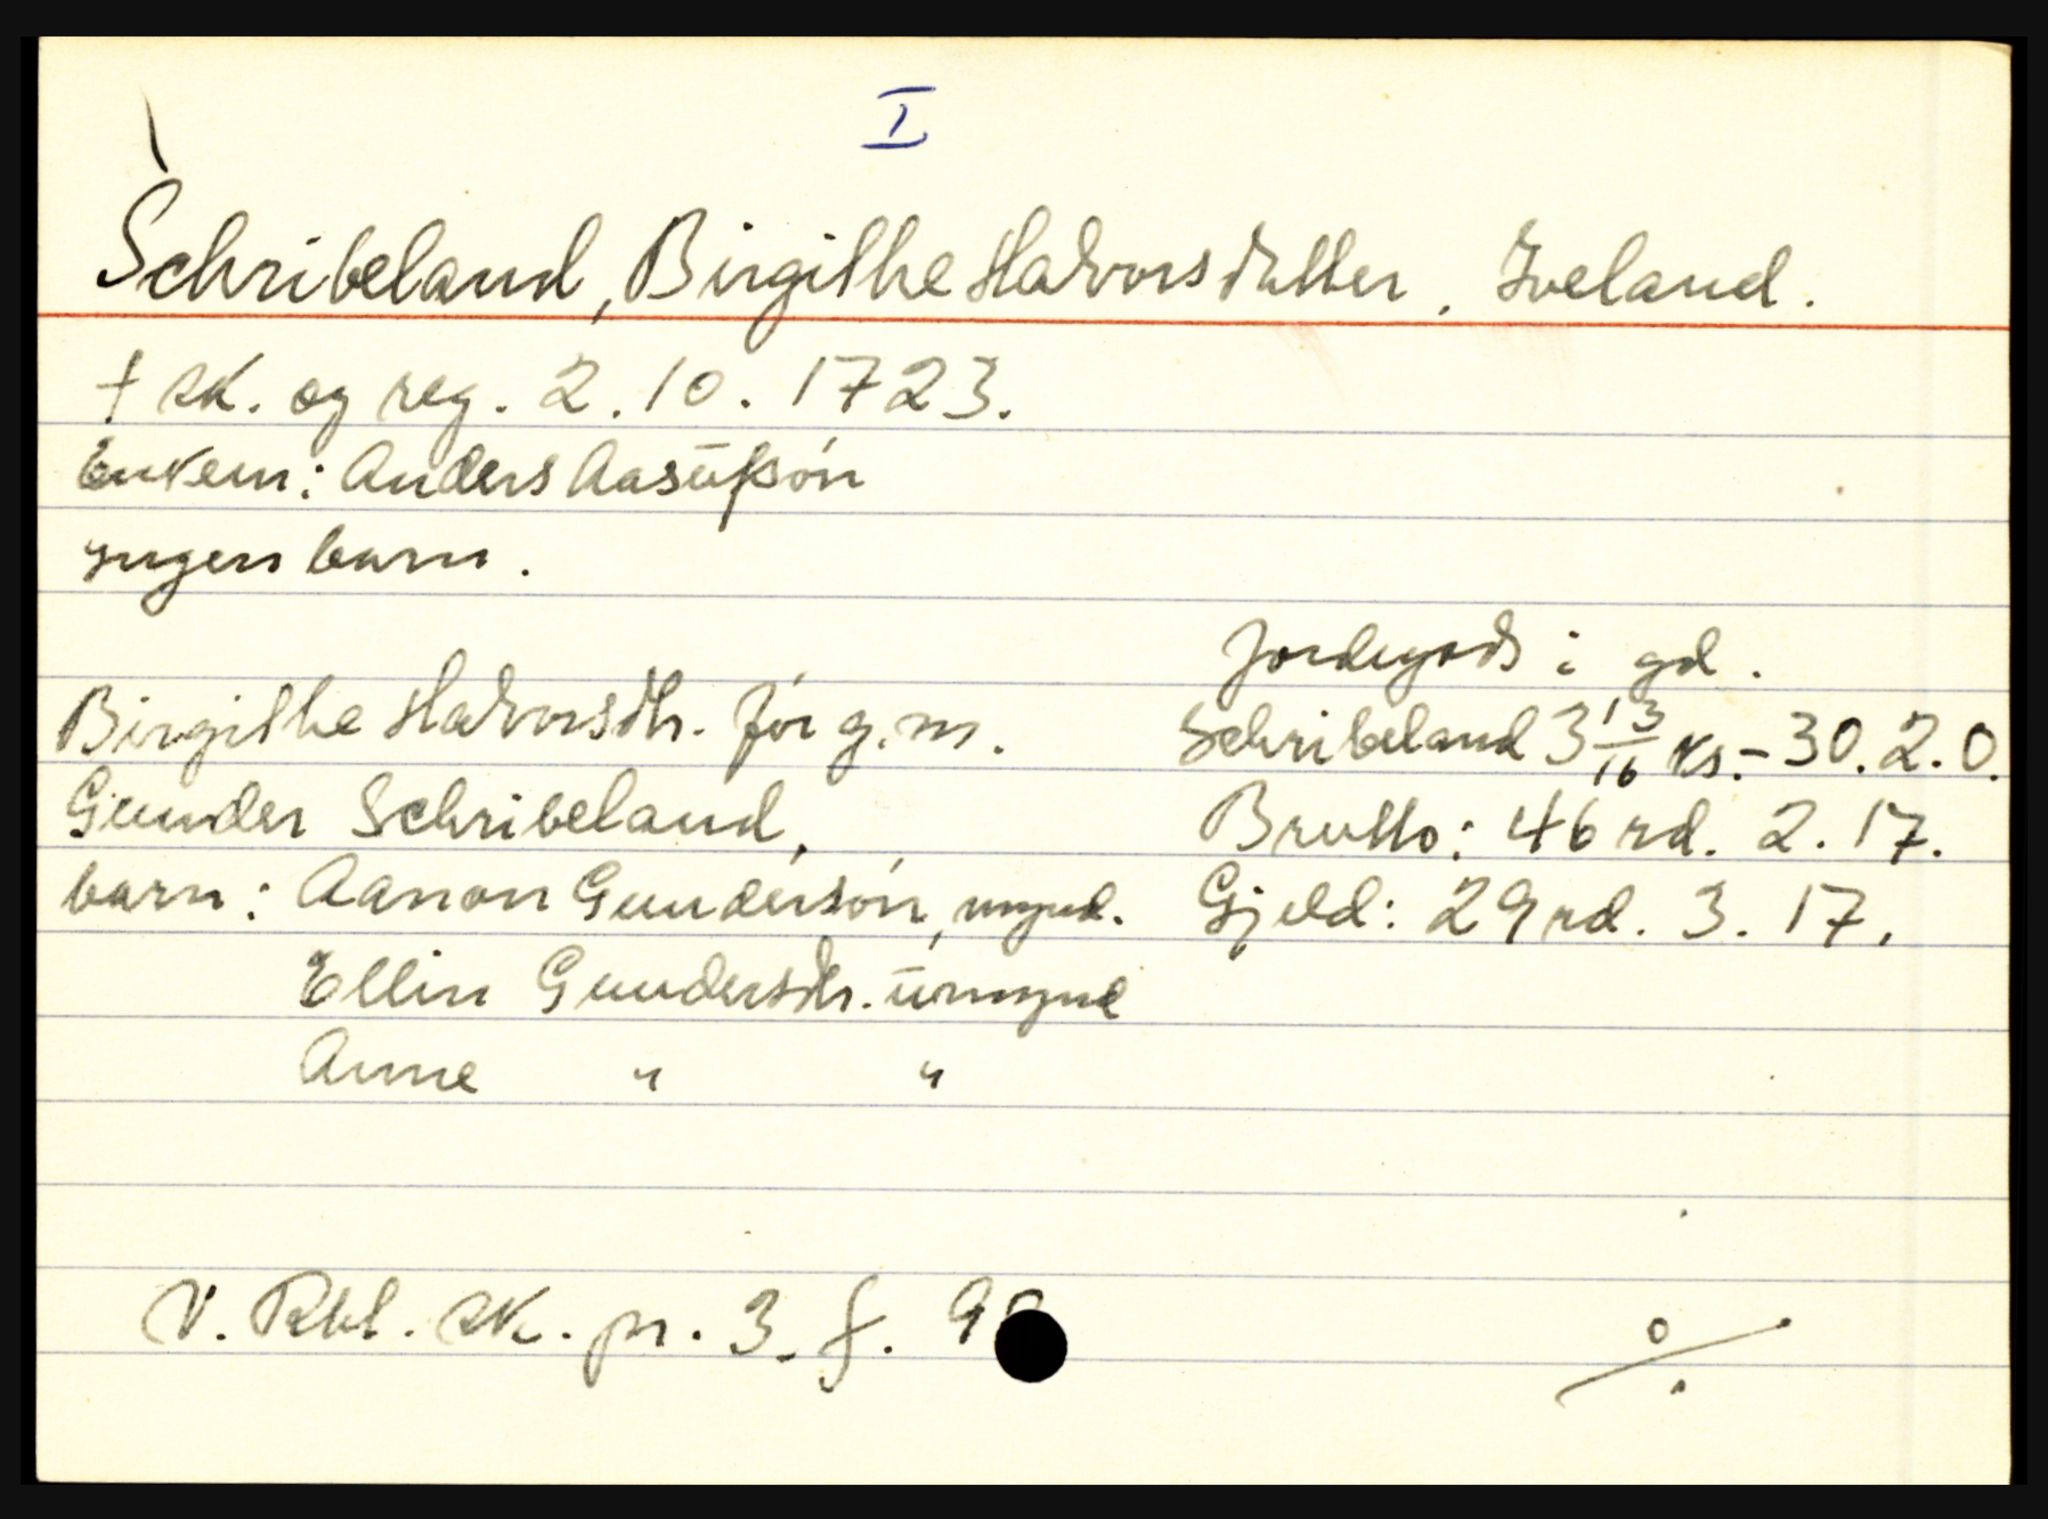 I
Schribeland, Birgithe Halvorsdatter. Iveland.
† sk. og reg. 2.10.1723.
Enkem: Anders Aasüfsón
Ingen barn.
Jordegods i gd.
Birgithe Halvorsdtr. før g. m.
Schribeland 3 13/16 ks.- 30.2.0.
Gunder Schribeland,
Brutto: 46 rd. 2.17.
barn: Aanon Gundersón, mynd.
Gjeld: 29 rd. 3.17.
Ellin Gundersdtr. ümynd
Anne " "
V. Rbl. sk. pr. 3. f.
%